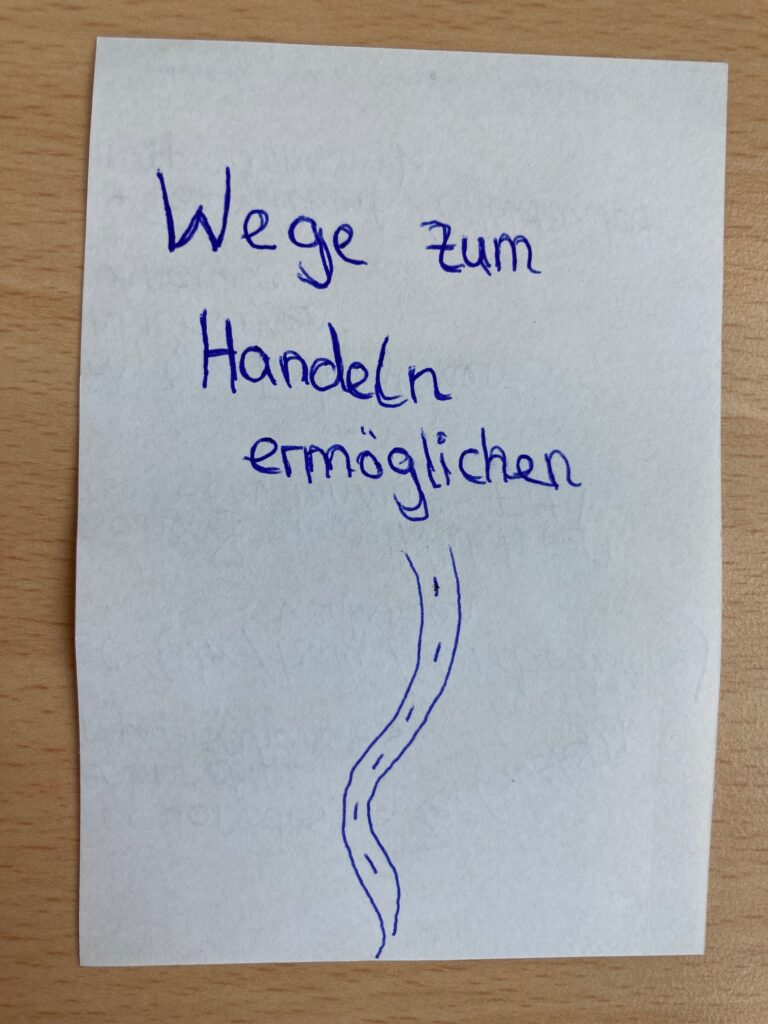 Wege zum
Handeln
ermöglichen